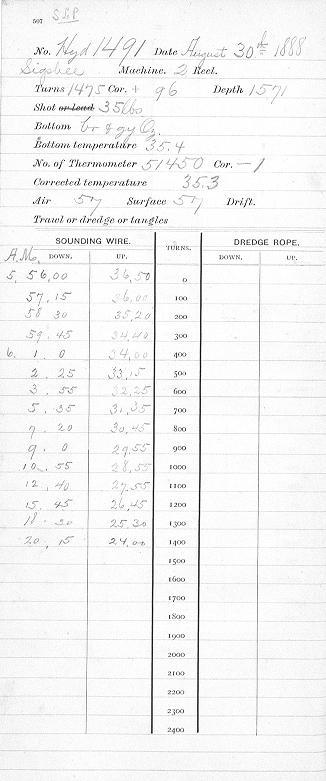 507 S&P
No. Hyd 1491 Date August 30th 1888
Sigsbee Machine. 2 Reel.
Turns 1475 Cor. + 96 Depth 1571
Shot or lead 35 lbs
Bottom br & gy Oz.
Bottom temperature 35.4
No. of Thermometer 51450 Cor. — 1
Corrected temperature 35.3
Air 57 Surface 57 Drift.
Trawl or dredge or tangles
SOUNDING WIRE. TURNS. DREDGE ROPE.
A.M. DOWN. UP. DOWN. UP.
5. 56,00 36,50 0
57.15 36,00 100
58 30 35,20 200
59.45 34,40 300
6. 1. 0 34,00 400
2. 25 33,15 500
3. 55 32,25 600
5. 35 31,35 700
7. 20 30,45 800
9. 0 29,55 900
10. 55 28,55 1000
12. 40 27,55 1100
15. 45 26,45 1200
18. 20 25,30 1300
20, 15 24,00 1400
1500
1600
1700
1800
1900
2000
2100
2200
2300
2400